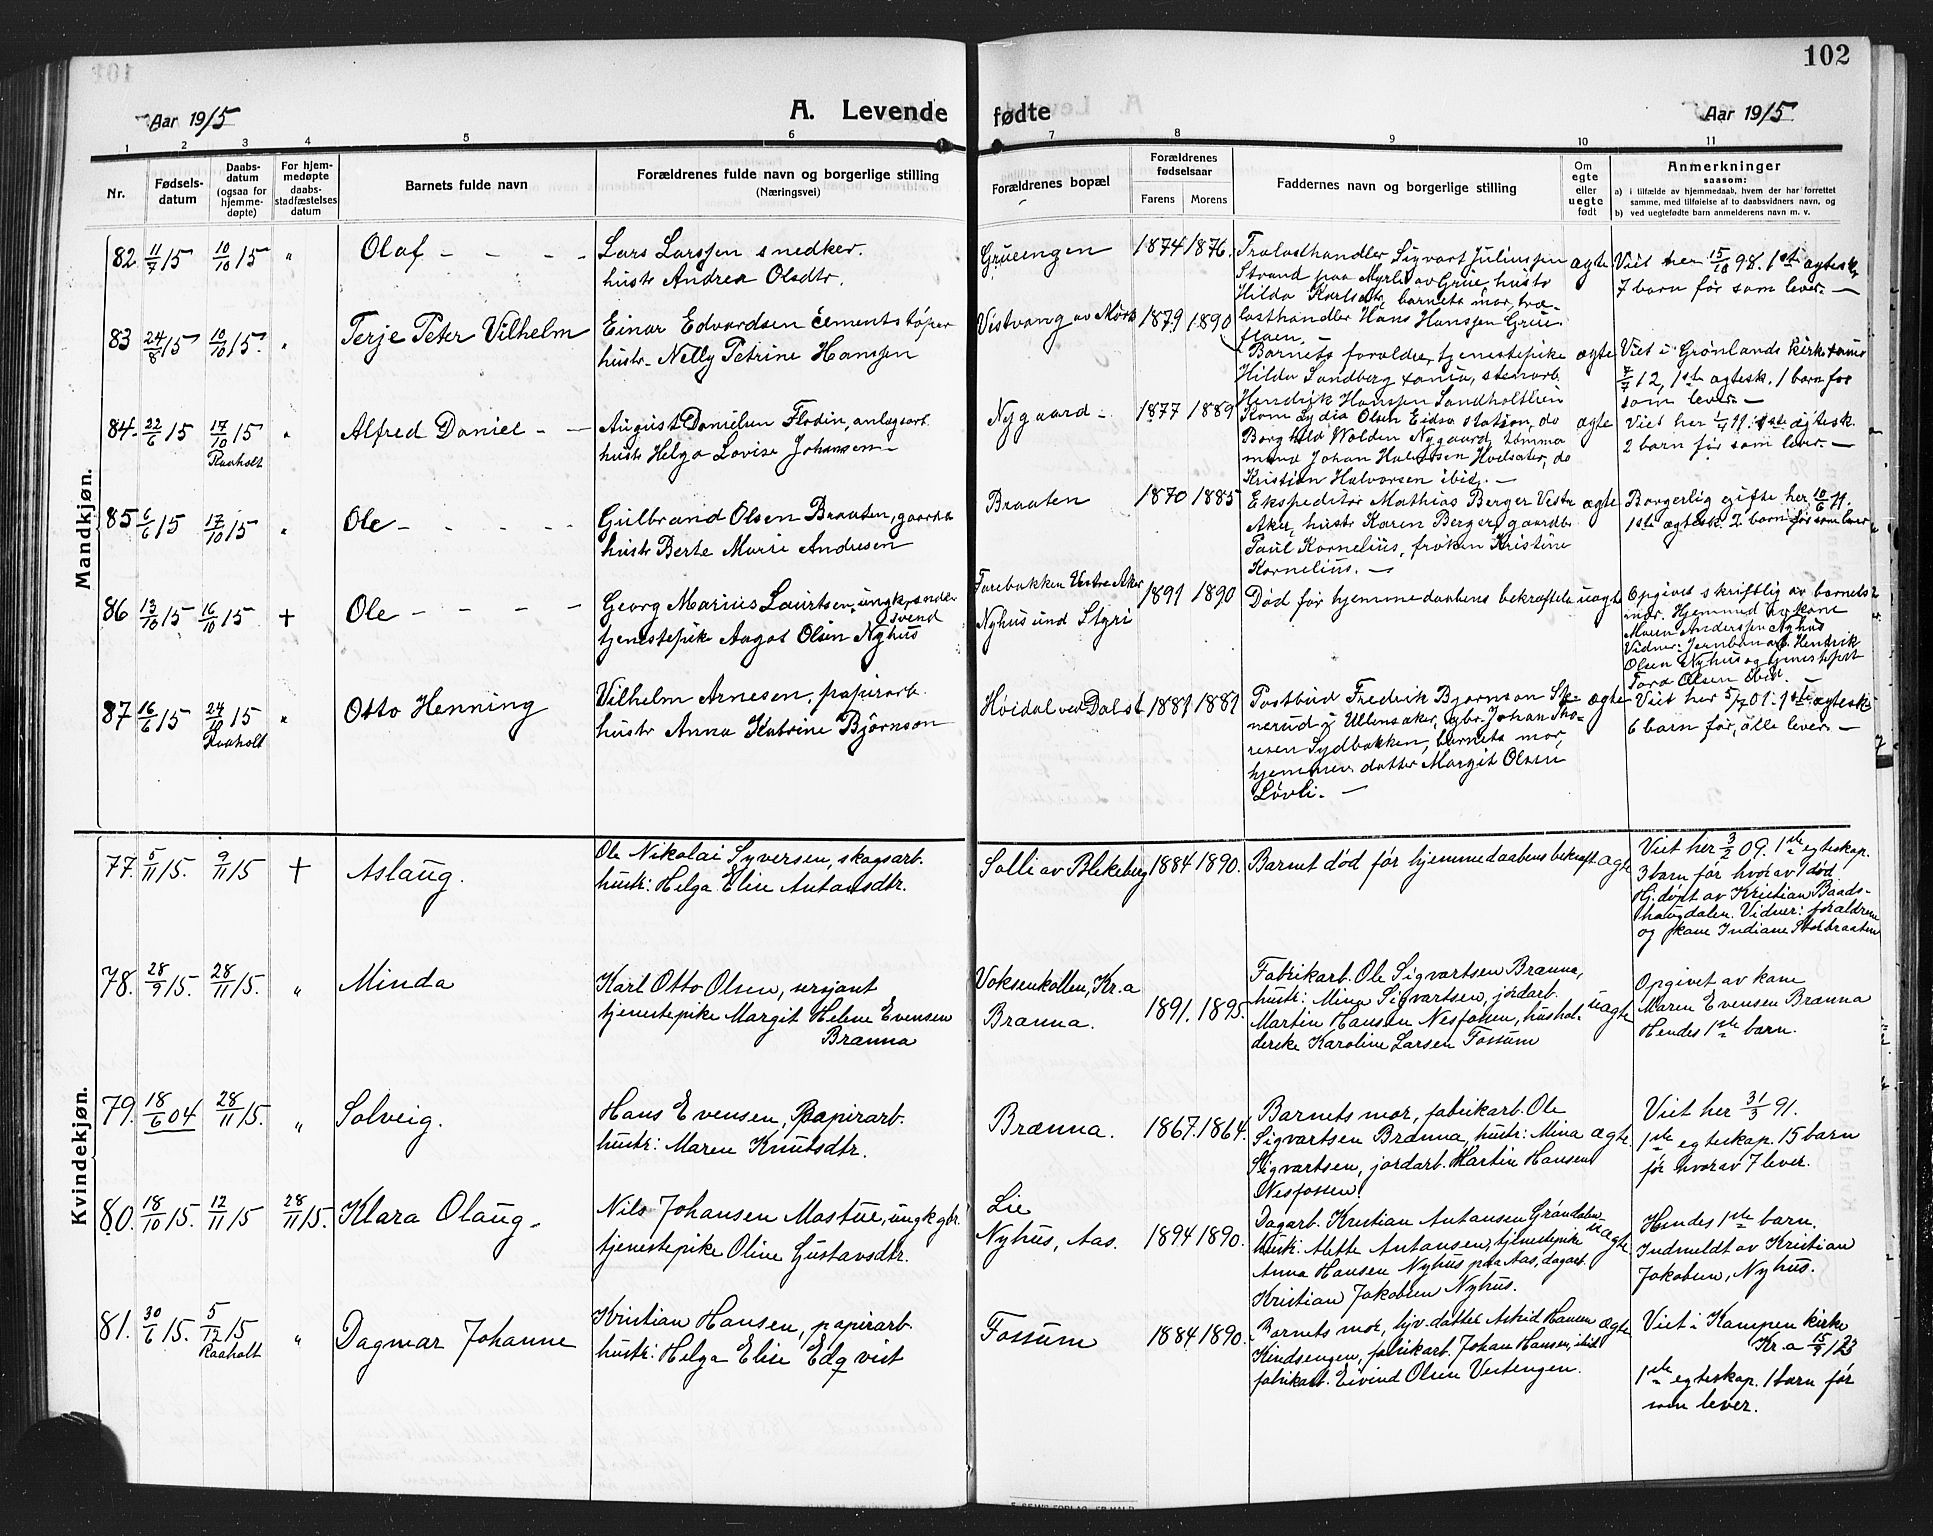 102
Aar 1915
A. Levende fødte
Aar 1915
1 2 3 4 5 6 7 8 9 10 11
Nr.
Fødsels-
datum
Daabs-
datum
(ogsaa for
hjemme-
døpte)
For hjem-
medøpte
daabs-
stadfæstelses
datum
Barnets fulde navn
Forældrenes fulde navn og borgerlige stilling
(Næringsvei)
Forældrenes bopæl
Forældrenes
fødselsaar
Farens Morens
Faddernes navn og borgerlige stilling
Om
egte
eller
uegte
født
Anmerkninger
saasom:
a) i tilfælde av hjemmedaab, hvem der har forrettet
samme, med tilføielse af to daabsvidners navn, og
b) ved uegtefødte barn anmelderens navn m. v.
Mandkjøn.
82 11/7 15 10/10 15 "
Olaf - - - -
Lars Larssen snedker.
hustr Andrea Olsdtr.
Grueengen
1874 1876.
Trælasthandler Sigvart Juliussen
Strand paa Myrli av Grue, hustr
Hilda Karlsdtr, barnets mor, træ-
lasthandler Hans Hanssen Grue-
flaen. -
ægte
Viet her 15/10 98. 1ste ægtesk,
7 barn før som lever. -
83 24/8 15 10/10 15. "
Terje Peter Vilhelm
Einar Edvardsen cementstøper
hustr. Nelly Petrine Hanssen
Vestvang av Mørk
1879 1890
Barnets forældre, tjenestepike
Hilda Sandberg x ania, stenarb.
Hendrik Hanssen Sandholtlien
ægte
Viet i Grønlands kirke xania
7/7 12, 1ste ægtesk. 1 barn før
som lever. -
84. 22/6 15 17/10 15 "
Raaholt
Alfred Daniel - -
August Danielsen Flodin, anlægsarb.
hustr Helga Lovise Johansen -
Nygaard -
1877 1889
Kone Lydia Olsen Eidsv station, do
Borghild Wolden Nygaard, tømmer
mand Johan Halvorsen Hvelsæter, do
Kristian Halvorsen ibid. -
ægte
Viet her 1/4 11. 1ste ægtesk.
2 barn før som lever. -
85 6/6 15 17/10 15 "
Ole - - - -
Gulbrand Olsen Braaten, gaardbr
hustr Berte Marie Andresen
Braaten
1870 1885
Ekspeditør Mathias Berger Vestr
Aker, hustr Karen Berger, gaardbr
Paul Kornelius, frøken Kristine
Kornelius. -
ægte
Borgerlig gifte her 10/6 11.
1ste ægtesk. 2 barn før som lever
86 13/10 15 16/10 15 +
Ole - - - -
Georg Marius Lauritsen, ungk, snedker
svend
tjenestepik Aagot Olsen Nyhus
Farebakken Vestre Aker
Nyhus und Styri
1891 1890
Død før hjemmedaabens bekræftelse
uægte
Opgivet skriftlig av barnets
mor. Hjemmed av kone
Maren Anderssen Nyhus
Vidner: Jernbanearb Hendrik
Olsen Nyhus og tjenestepik
Tora Olsen ibid.
87 16/6 15 24/10 15 "
Raaholt
Otto Henning
Vilhelm Arnesen, papirarb.
hustr Anna Katrine Bjørnson
Høidal ved Dalst
1881 1881
Postbud Fredrik Bjørnson Ske-
nerud i Ullensaker, gbr. Johan Tho-
resen Sydbakken, barnets mor,
hjemmev. datter Margit Olsen
Løvli. -
ægte
Viet her 5/7 01. 1ste ægtesk
6 barn før, alle lever. -
Kvindekjøn.
77. 5/11 15. 9/11 15 +
Aslaug.
Ole Nikolai Syversen, skogsarb.
hustr: Helga Elise Antonsdtr.
Solli av Blekeberg
1884 1890.
Barnet død før hjemmedaabens bekræft.
ægte
Viet her 3/2 09. 1ste egteskap.
3 barn før hvorav 1 død.
Hj.døpt av Kristian Baads-
haugdalen. Vidner: forældrene
og kone Indiane Storbraaten
78. 28/9 15. 28/11 15. "
Minda
Karl Otto Olsen, sersjant
tjenestepike Margit Helene Evensen
Brænna
Voksenkollen, Kr.a
Brænna.
1891. 1895.
Fabrikarb. Ole Sigvartsen Brænna,
hustr: Mina Sigvartsen, jordarb.
Martin Hansen Nesfossen, hushol-
derske Karoline Larsen Fossum
uægte
Opgivet av kone
Maren Evensen Brænna
Hendes 1ste barn.
79. 18/6 04 28/11 15. "
Solveig.
Hans Evensen, Papirarb.
hustr: Maren Knutsdtr.
Brænna.
1867. 1864.
Barnets mor, fabrikarb. Ole
Sigvartsen Brænna, hustr: Mina
Sigvartsen, jordarb. Martin Hansen
Nesfossen.
ægte.
Viet her 31/3 91.
1ste egteskap. 15 barn
før hvorav 7 lever.
80. 18/10 15. 12/11 15 28/11 15.
Klara Olaug.
Nils Johansen Mostue, ungk gbr.
tjenestepike Olive Gustavsdtr.
Lie
Nyhus, Aas.
1894 1890.
Dagarb. Kristian Antansen Grøndalen
hustr: Alette Antansen, tjenestepike
Anna Hansen Nyhus paa Aas, dagarb.
Kristian Jakobsen Nyhus.
uægte
Hendes 1ste barn.
Indmeldt av Kristian
Jakobsen, Nyhus.
81. 30/6 15. 5/12 15 "
Raaholt
Dagmar Johanne
Kristian Hansen, papirarb.
hustr: Helga Elise Edqvist
Fossum
1884 1890.
Barnets mor, hjv. datter Astrid Hansen
Kindsengen, fabrikarb. Johan Hansen, ibid
fabrikarb. Eivind Olsen Vestengen.
ægte
Viet i Kampen kirke
Kr.a 15/9 12
1ste egteskap. 1 barn før
som lever.